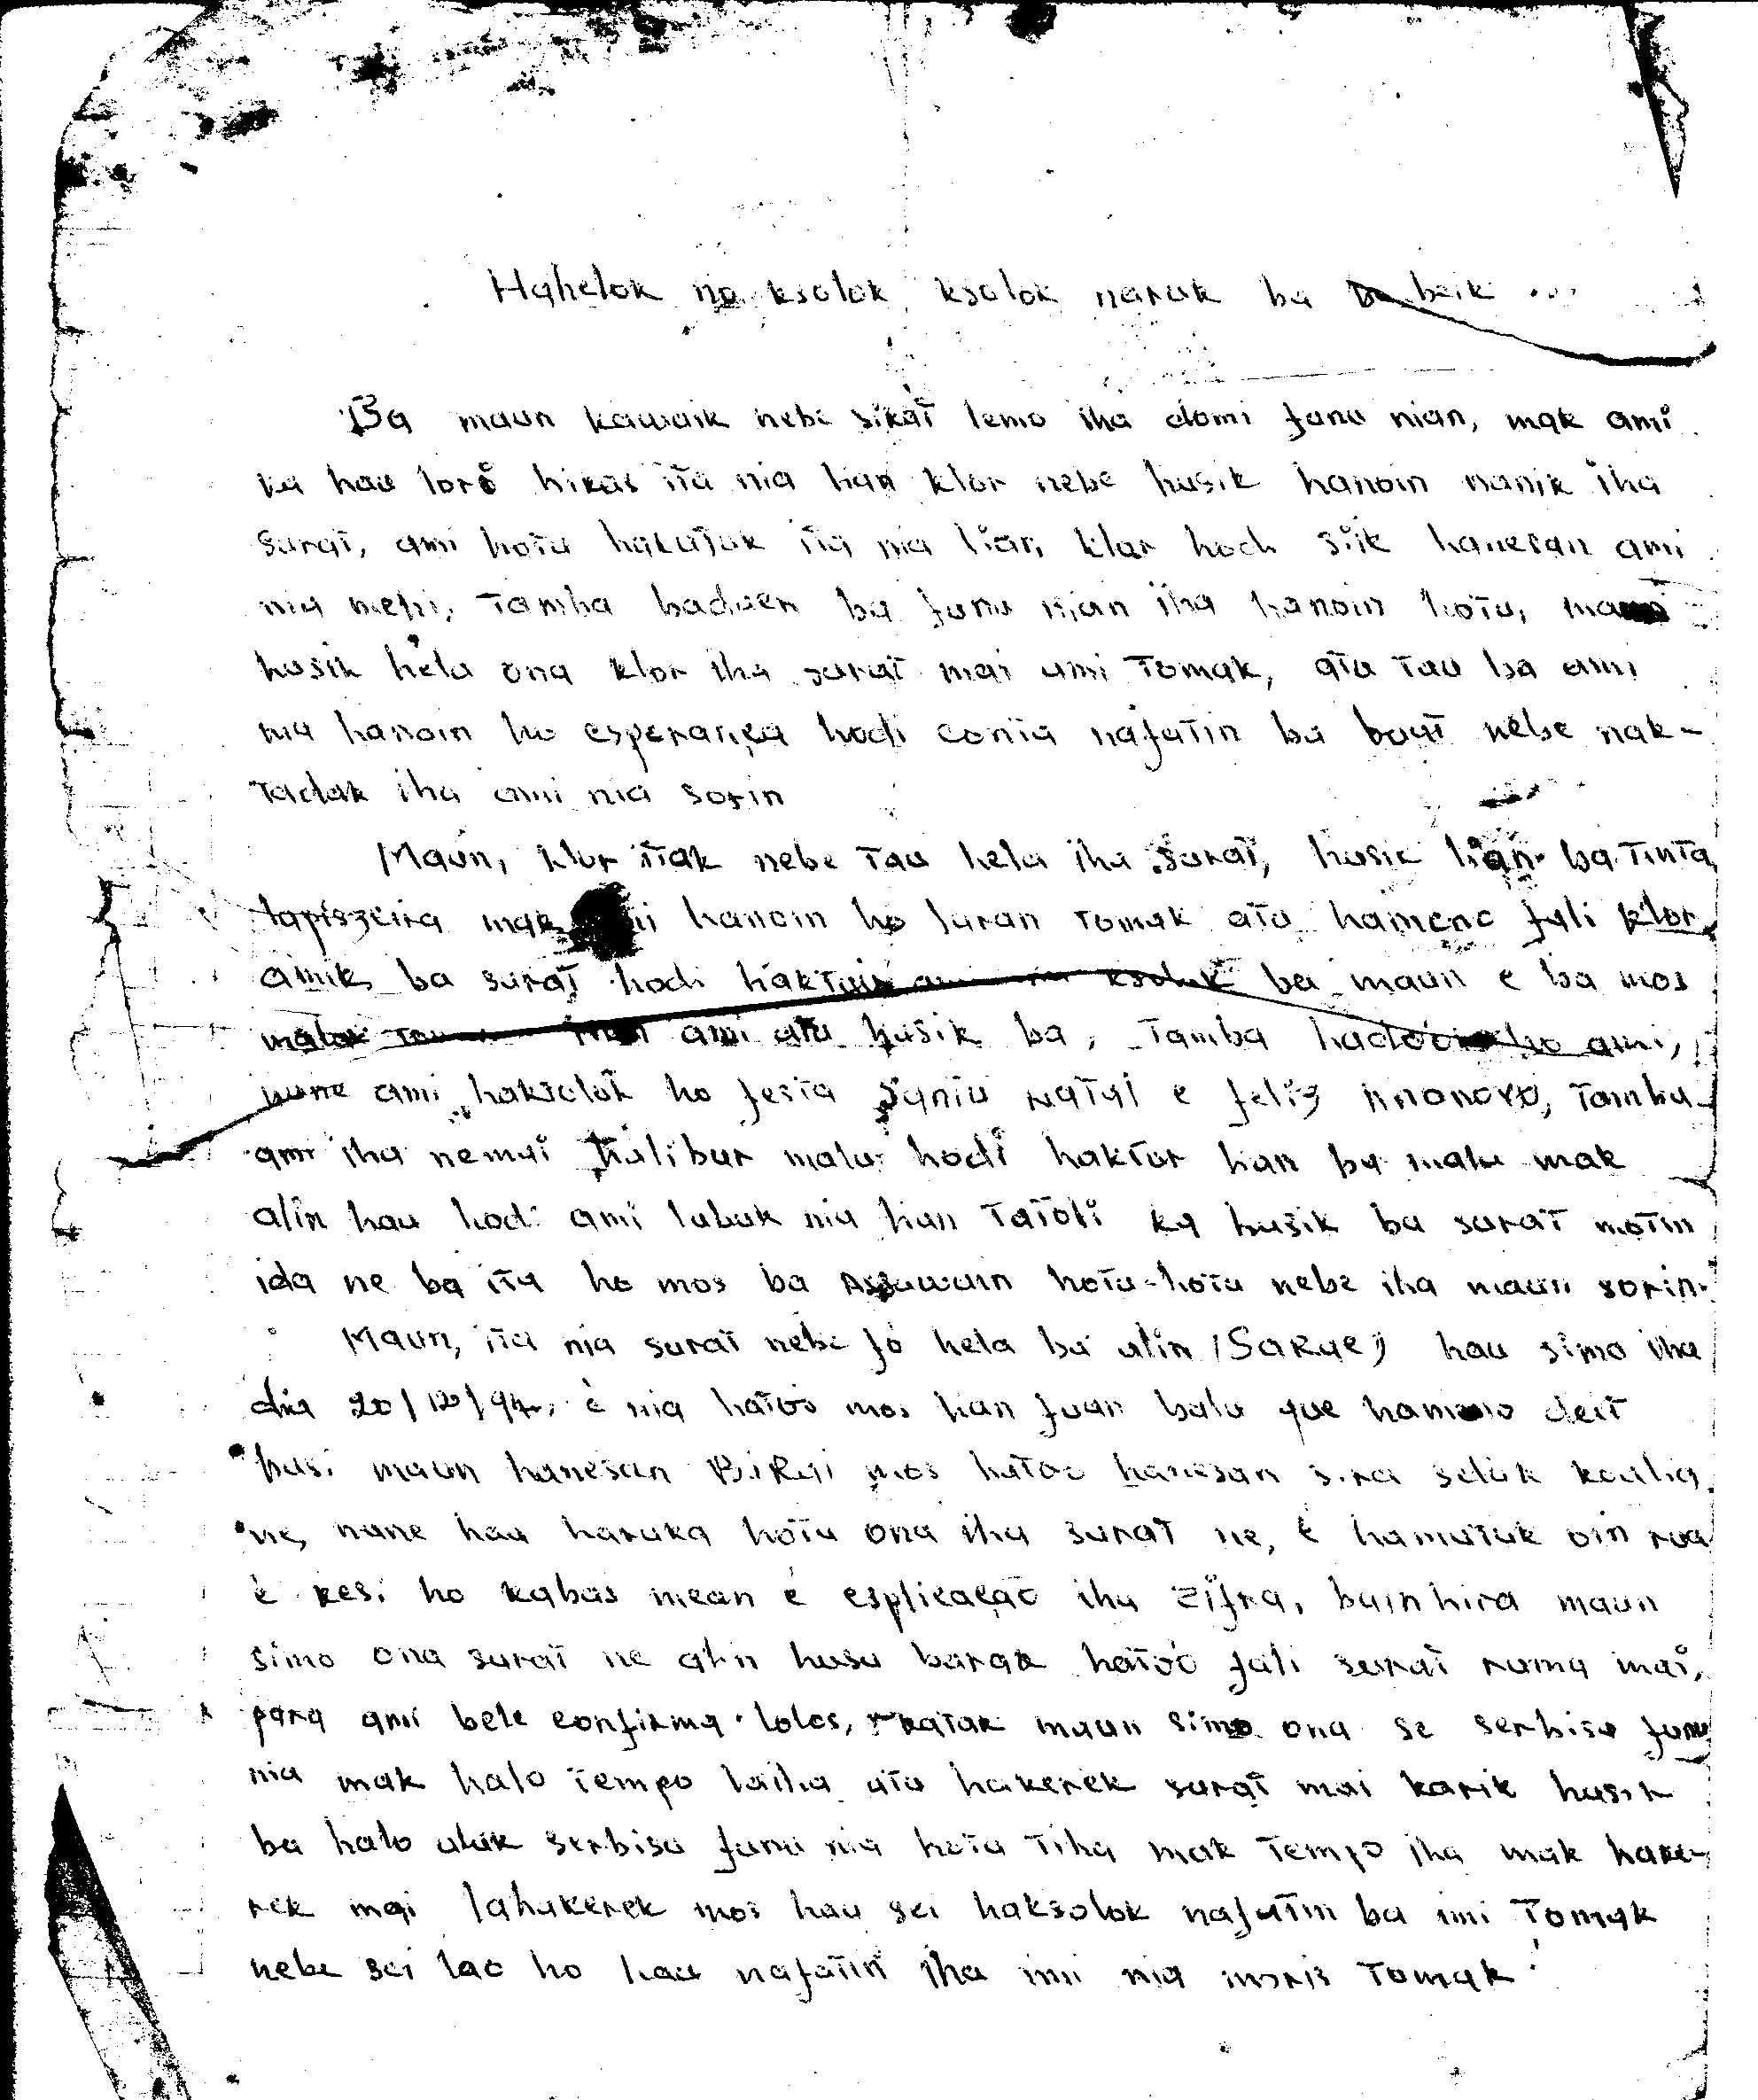 Hahelok no ksolok ksolok naruk ba beik ...
Ba maun kawaik nebe sikat lemo iha domi funu nian, mak ami
ka hau loro hikas ita nia lian klor nebe husik hanoin nanik iha
surat, ami hotu ita nia lian klar hodi siik hanesan ami
nia mehi, tamba baduen ba funu nian iha hanoin hotu,
husik hela ona klor iha surat mai ami tomak, atu tau ba ami
nia hanoin ho esperança hodi contia nafatin ba boat nebe nak-
tadak iha ami nia sorin
Maun, klor itak nebe tau hela iha surat, husic lian ba tinta
lapiszeira mak hanoin ho laran tomak atu hameno fali klor
amik ba surat hodi haktuir ksolok ba maun e ba mos
maluk ami atu husik ba, tamba ho ami,
nune ami haksolok ho festa Santu Natal e feliz Anonovo, tamba
ami iha nemai halibur malu hodi haktur lian ba malu mak
alin hau hodi ami lubuk nia lian tatoli ka husik ba surat motin
ida ne ba ita ho mos ba Assuwain hotu-hotu nebe iha maun sorin.
Maun, ita nia surat nebe fó hela ba alin (Sakae) hau simo iha
dia 20/12/94, è nia hatoo mos lian fuan balu que hameno deit
husi maun hanesan mos hatoo hanesan sira seluk koalia
ne, nune hau haruka hotu ona iha surat ne, è hamutuk oin rua
è kesi ho kabas mean è esplicação iha zifra, bainhira maun
simo ona surat ne alin husu barak hatoó fali surat ruma mai,
para ami bele confirma lolos, katak maun simo ona se serbisu funu
nia mak halo tempo laiha atu hakerek surat mai karik husik
ba halo uluk serbisu funu nia hotu tiha mak tempo iha mak hake-
rek mai lahakerek mos hau sei haksolok nafatin ba imi tomak
nebe sei lao ho hau nafatin iha imi nia moris tomak.